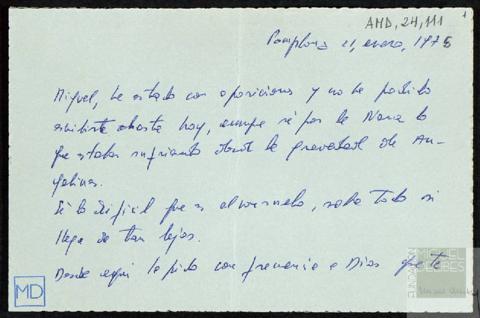 AMD, 24, 111
1
Pamplona 21, enero, 1975
Miguel, he estado con oposiciones y no he podido
escribirte hasta hoy, aunque sé por la Nana lo
que estabas sufriendo dada la gravedad de An-
gelines.
Sé lo difícil que es el consuelo, sobre todo si
llega de tan lejos.
Desde aquí le pido con frecuencia a Dios que te
MD
FUNDACIÓN
MIGUEL
DELIBES